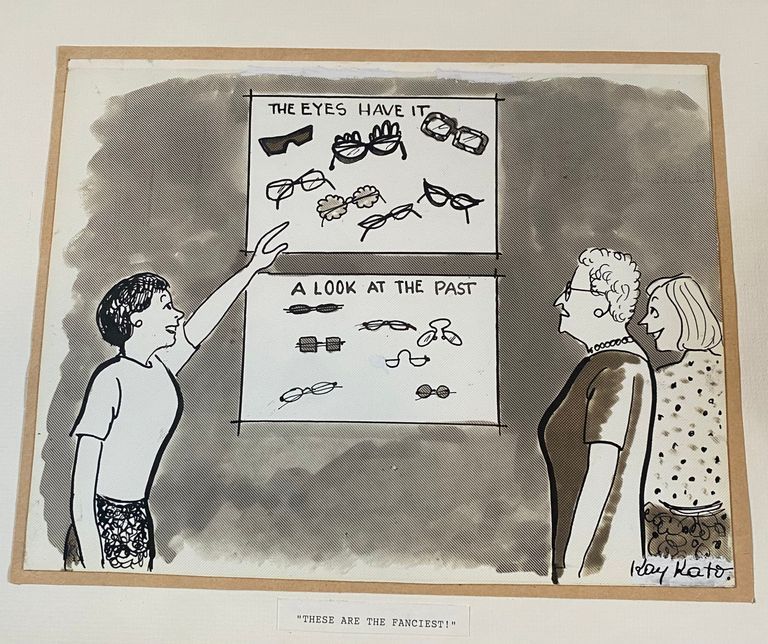 THE EYES HAVE IT
A LOOK AT THE PAST
Kay Kato.
"THESE ARE THE FANCIEST!"